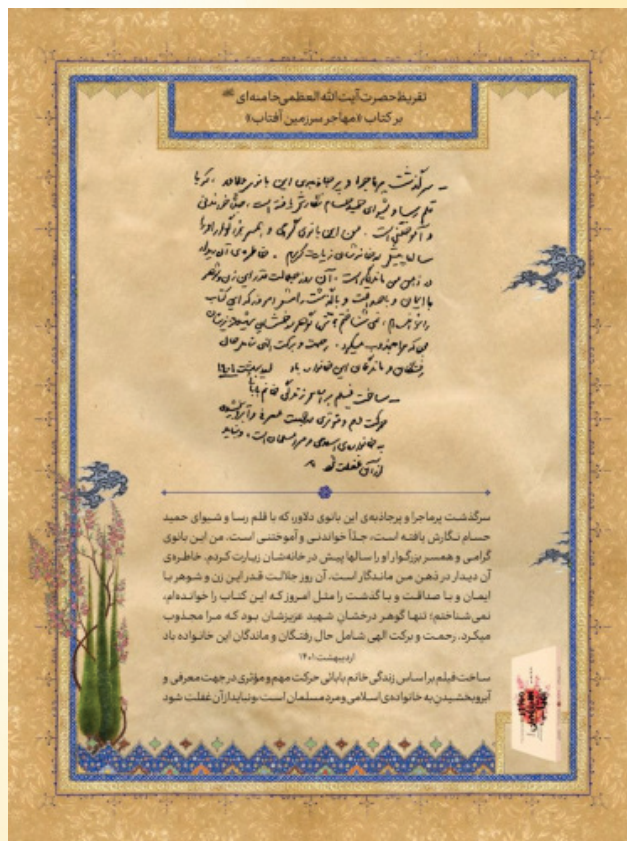 تقریظ حضرت آیت‌الله العظمی خامنه‌ای
بر کتاب «مهاجر سرزمین آفتاب»
ـ سرگذشت پرماجرا و پرجاذبه‌ی این بانوی دلاور، که با
قلم رسا و شیوای حمید حسام نگارش یافته است، جدّاً خواندنی
و آموختنی است. من این بانوی گرامی و همسر بزرگوار او را
سالها پیش در خانه‌شان زیارت کردم. خاطره‌ی آن دیدار
در ذهن من ماندگار است. آن روز جلالت قدر این زن و شوهر
با ایمان و با صداقت و با گذشت را مثل امروز که این کتاب
را خوانده‌ام، نمی‌شناختم؛ تنها گوهر درخشان شهید عزیزشان
بود که مرا مجذوب میکرد. رحمت و برکت الهی شامل حال
رفتگان و ماندگان این خانواده باد اردیبهشت ۱۴۰۱
ـ ساخت فیلم بر اساس زندگی خانم بابائی
حرکت مهم و مؤثری در جهت معرفی و آبرو بخشیدن
به خانواده‌ی اسلامی و مرد مسلمان است، و نباید
از آن غفلت شود
سرگذشت پرماجرا و پرجاذبه‌ی این بانوی دلاور، که با قلم رسا و شیوای حمید
حسام نگارش یافته است، جدّاً خواندنی و آموختنی است. من این بانوی
گرامی و همسر بزرگوار او را سالها پیش در خانه‌شان زیارت کردم. خاطره‌ی
آن دیدار در ذهن من ماندگار است. آن روز جلالت قدر این زن و شوهر با
ایمان و با صداقت و با گذشت را مثل امروز که این کتاب را خوانده‌ام،
نمی‌شناختم؛ تنها گوهر درخشان شهید عزیزشان بود که مرا مجذوب
میکرد. رحمت و برکت الهی شامل حال رفتگان و ماندگان این خانواده باد
اردیبهشت ۱۴۰۱
ساخت فیلم بر اساس زندگی خانم بابائی حرکت مهم و مؤثری در جهت معرفی و
آبرو بخشیدن به خانواده‌ی اسلامی و مرد مسلمان است، و نباید از آن غفلت شود